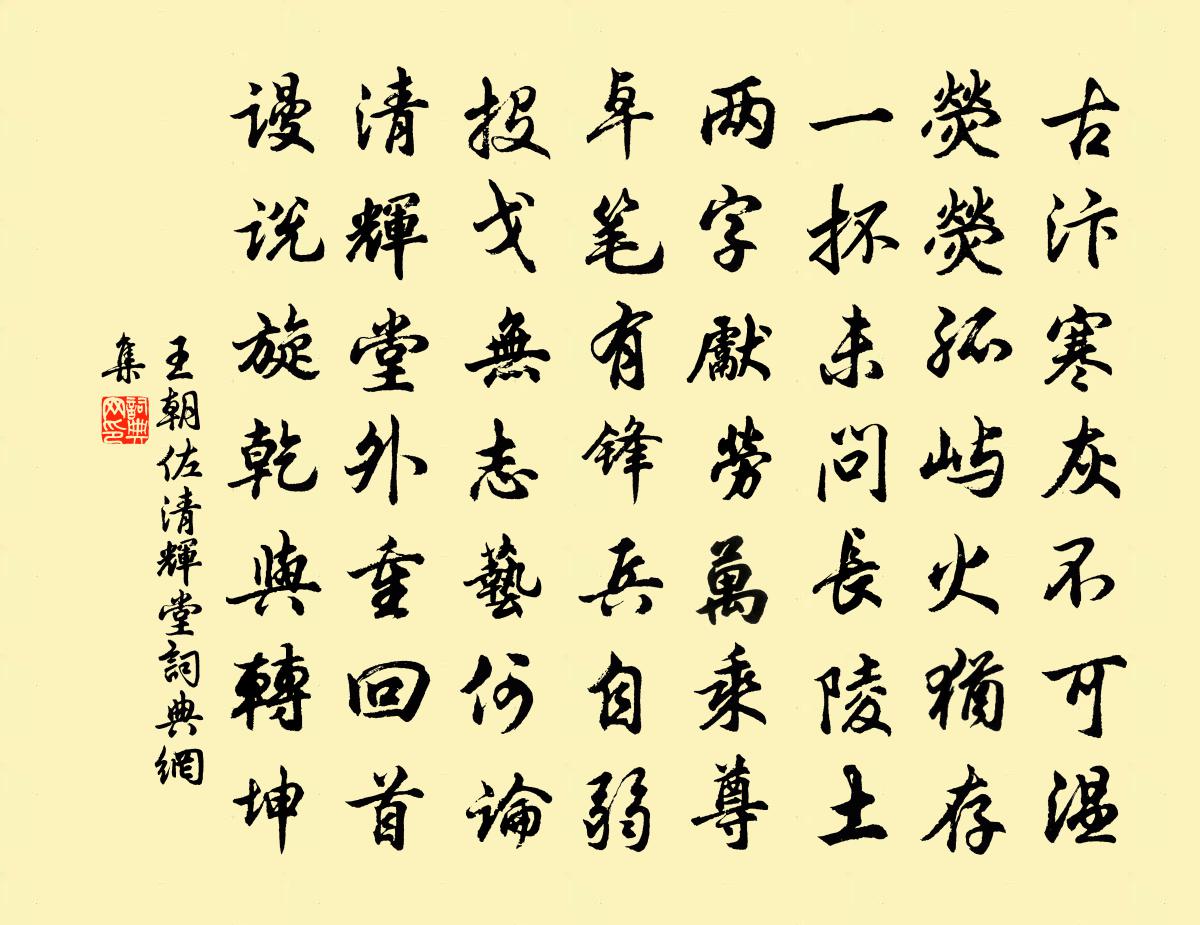 古汴寒灰不可温
荧荧孤屿火犹存
一抔未问長陵土
两字獻勞萬乘尊
卓笔有锋兵自弱
投戈無志藝何論
清輝堂外重回首
谩说旋乾與轉坤
王朝佐清輝堂詞典網
集
詞典網印